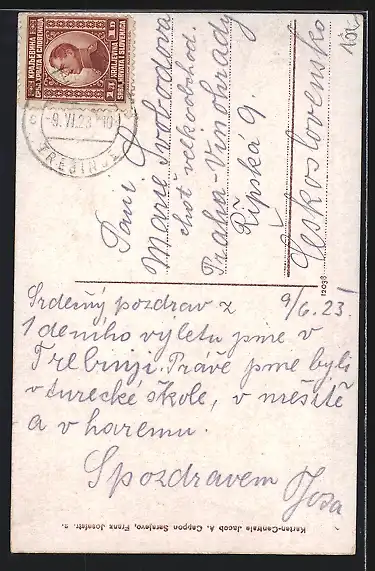 КРАЉЕВИНА
СРБА, ХРВАТА И СЛОВЕНАЦА
1 Д
KRALJEVINA
SRBA, HRVATA I SLOVENACA
-9.VI.23 -10
TREBINJE
Paní
Marie Svobodová
choť velkoobchod.
Praha-Vinohrady
Řípská 9.
Československo
12038
9/6. 23!
Srdečný pozdrav z
1deního výletu jsme v
Trebinji. Právě jsme byli
v turecké škole, v mešitě
a v haremu.
S pozdravem Josa
Karten-Centrale Jacob A. Cappon Sarajevo, Franz Josefstr. 2.